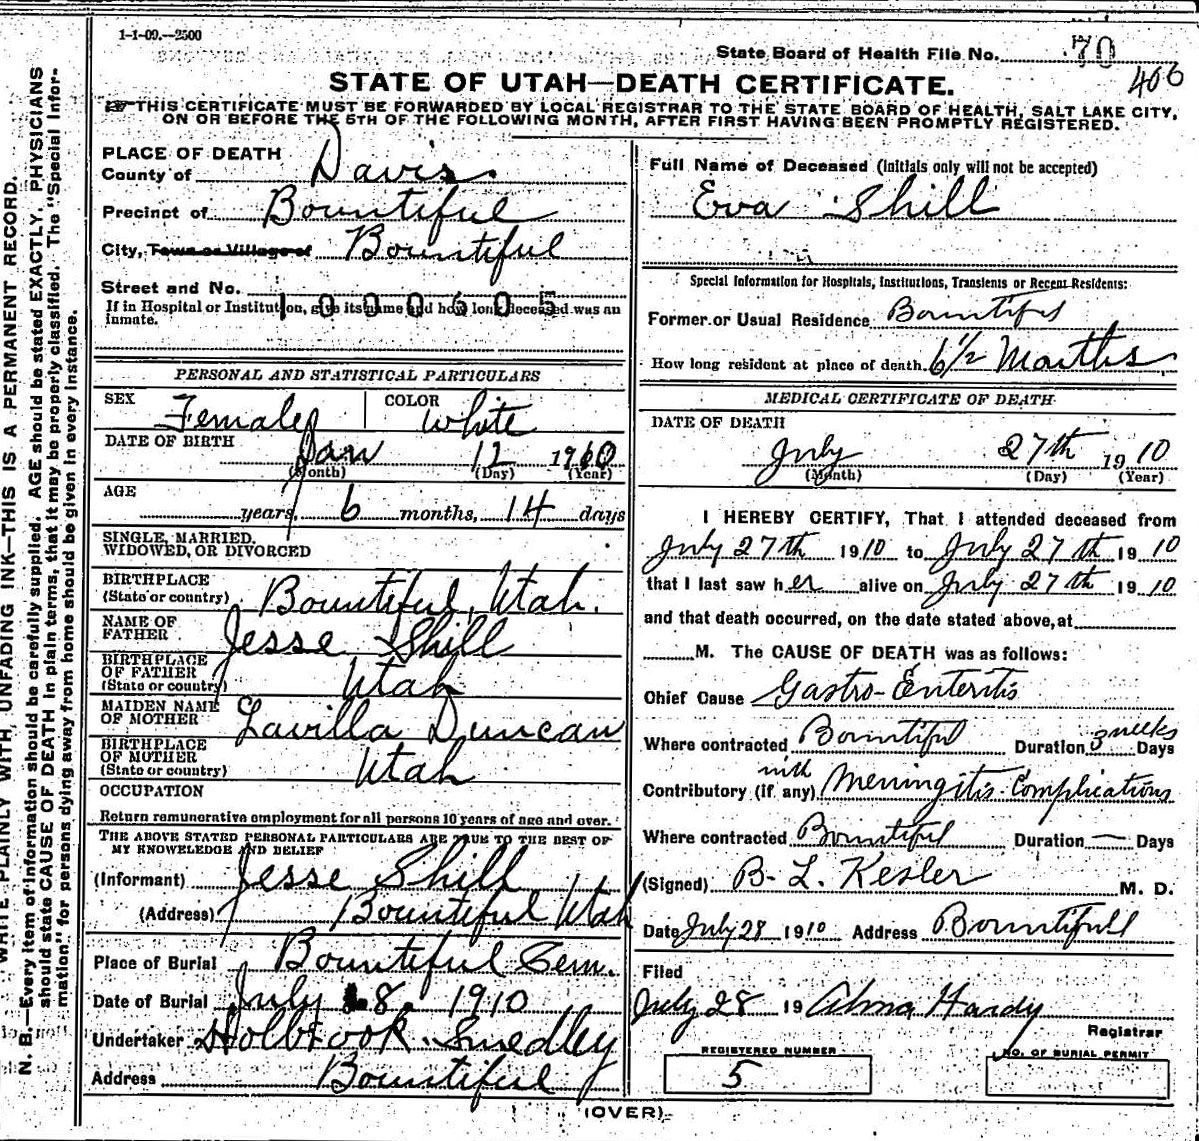 1-1-09.—2500
State Board of Health File No. 70
406
STATE OF UTAH—DEATH CERTIFICATE.
THIS CERTIFICATE MUST BE FORWARDED BY LOCAL REGISTRAR TO THE STATE BOARD OF HEALTH, SALT LAKE CITY,
ON OR BEFORE THE 5TH OF THE FOLLOWING MONTH, AFTER FIRST HAVING BEEN PROMPTLY REGISTERED.
WRITE PLAINLY WITH UNFADING INK—THIS IS A PERMANENT RECORD.
N. B.—Every item of information should be carefully supplied. AGE should be stated EXACTLY, PHYSICIANS
should state CAUSE OF DEATH in plain terms, that it may be properly classified. The "Special Infor-
mation" for persons dying away from home should be given in every instance.
PLACE OF DEATH
County of Davis
Precinct of Bountiful
City, Town or Village of Bountiful
Street and No.
1000605
If in Hospital or Institution, give its name and how long deceased was an
inmate.
PERSONAL AND STATISTICAL PARTICULARS
SEX Female COLOR White
DATE OF BIRTH Jan 12 1910
(Month) (Day) (Year)
AGE
years, 6 months, 14 days
SINGLE, MARRIED,
WIDOWED, OR DIVORCED
BIRTHPLACE
(State or country) Bountiful, Utah.
NAME OF
FATHER Jesse Shill
BIRTHPLACE
OF FATHER
(State or country) Utah
MAIDEN NAME
OF MOTHER Lavilla Duncan
BIRTHPLACE
OF MOTHER
(State or country) Utah
OCCUPATION
Return remunerative employment for all persons 10 years of age and over.
THE ABOVE STATED PERSONAL PARTICULARS ARE TRUE TO THE BEST OF
MY KNOWLEDGE AND BELIEF
(Informant) Jesse Shill
(Address) Bountiful Utah
Place of Burial Bountiful Cem.
Date of Burial July 8. 1910
Undertaker Holbrook. Smedley
Address Bountiful
Full Name of Deceased (Initials only will not be accepted)
Eva Shill
Special Information for Hospitals, Institutions, Transients or Recent Residents:
Former or Usual Residence Bountiful
How long resident at place of death 6 1/2 Months
MEDICAL CERTIFICATE OF DEATH
DATE OF DEATH
July 27th 1910
(Month) (Day) (Year)
I HEREBY CERTIFY, That I attended deceased from
July 27th 1910 to July 27th 1910
that I last saw her alive on July 27th 1910
and that death occurred, on the date stated above, at
M. The CAUSE OF DEATH was as follows:
Chief Cause Gastro-Enteritis
Where contracted Bountiful Duration 3 weeks Days
with
Contributory (if any) Meningitis-Complications
Where contracted Bountiful Duration — Days
(Signed) B. L. Kesler M. D.
Date July 28 1910 Address Bountifull
Filed
July 28 19 Alma Hardy
Registrar
REGISTERED NUMBER
5
NO. OF BURIAL PERMIT
(OVER)